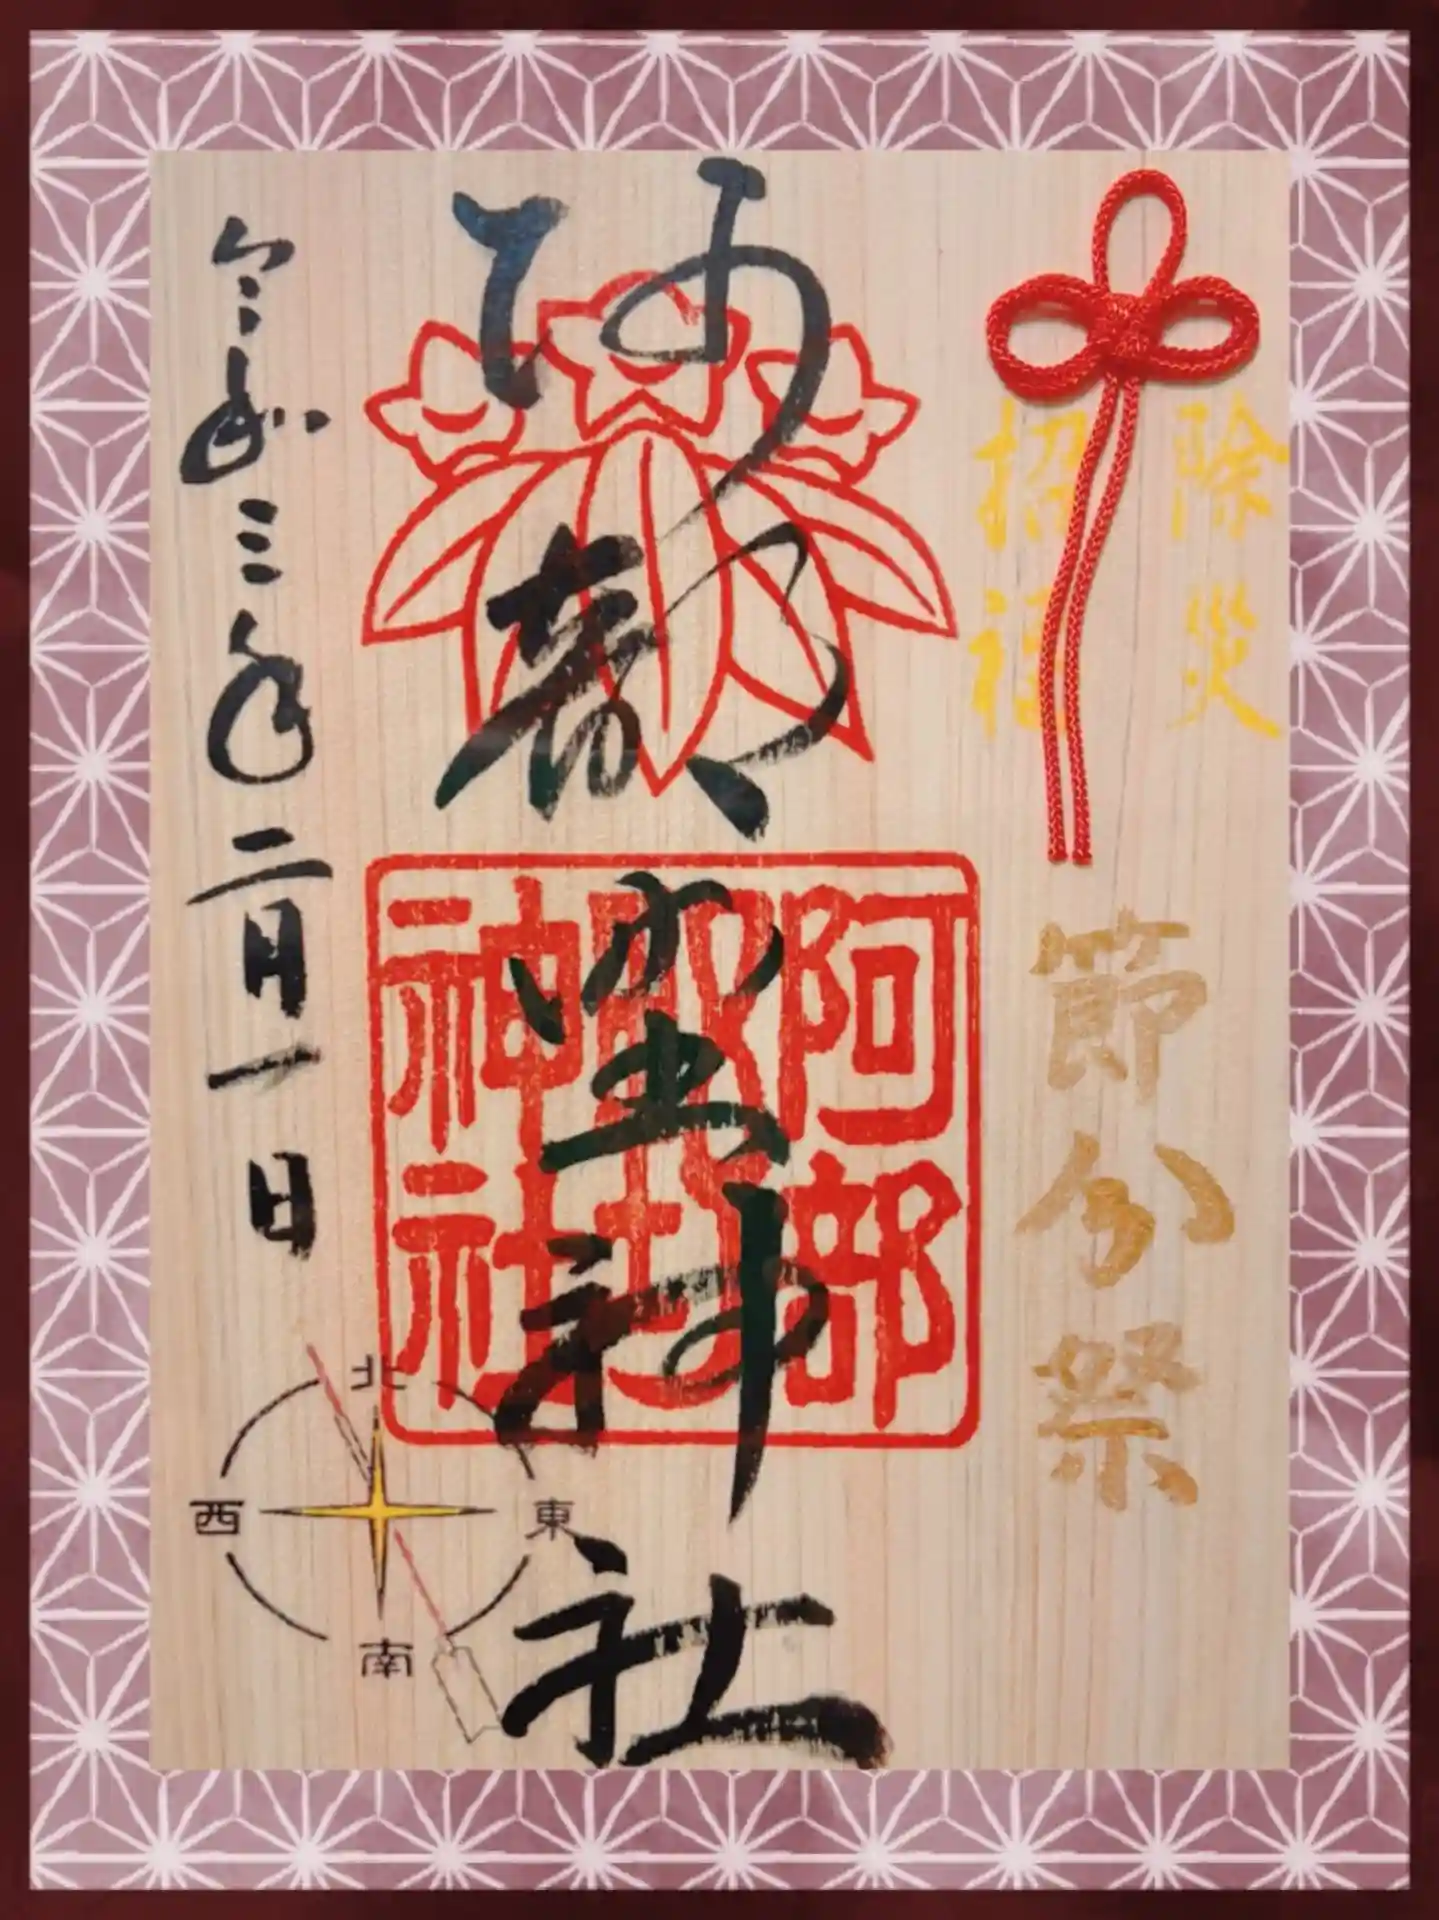 除災
招福
節分祭
阿部野神社
阿部
野
神社
令和三年二月一日
北
西
東
南